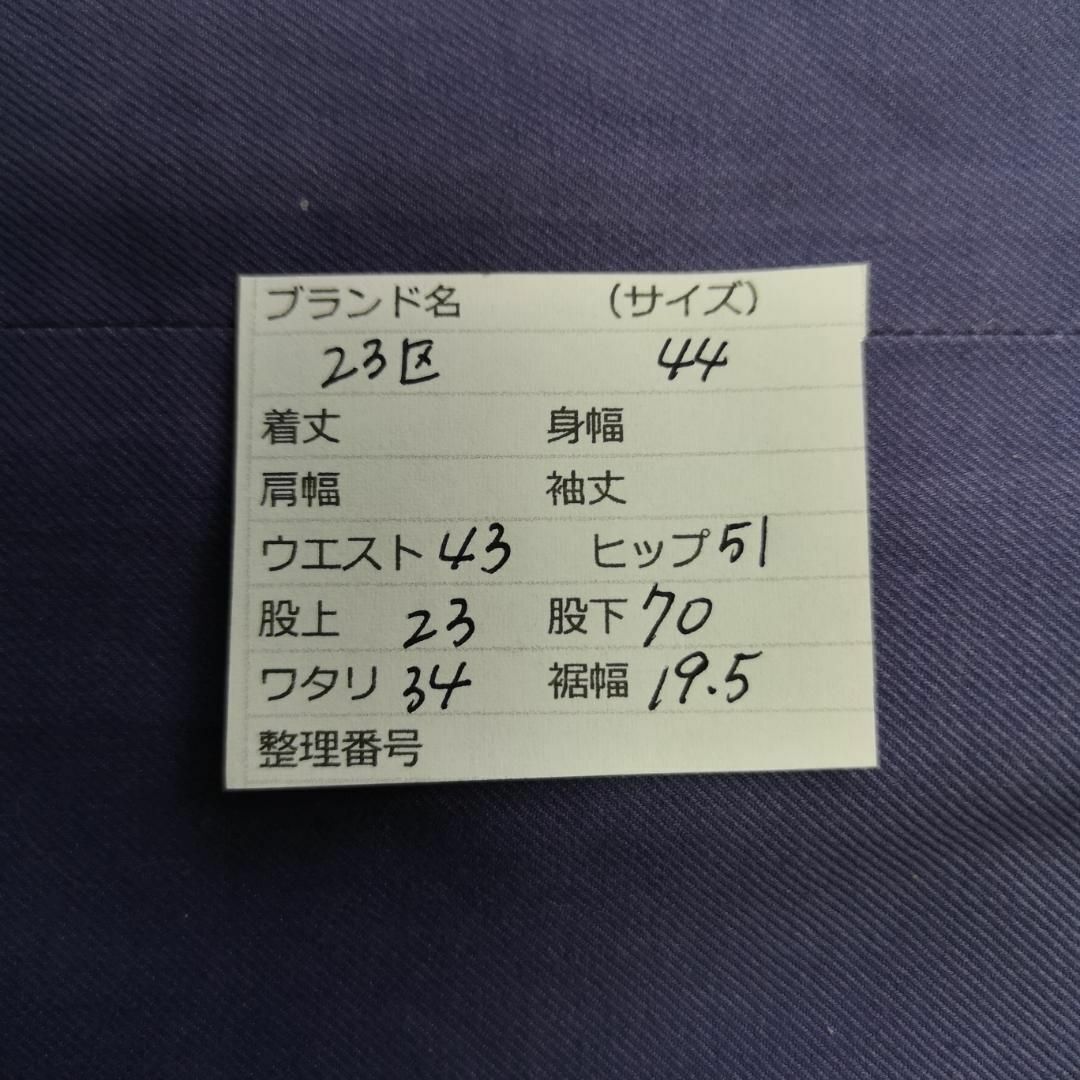 ブランド名 (サイズ)
23区 44
着丈 身幅
肩幅 袖丈
ウエスト 43 ヒップ 51
股上 23 股下 70
ワタリ 34 裾幅 19.5
整理番号